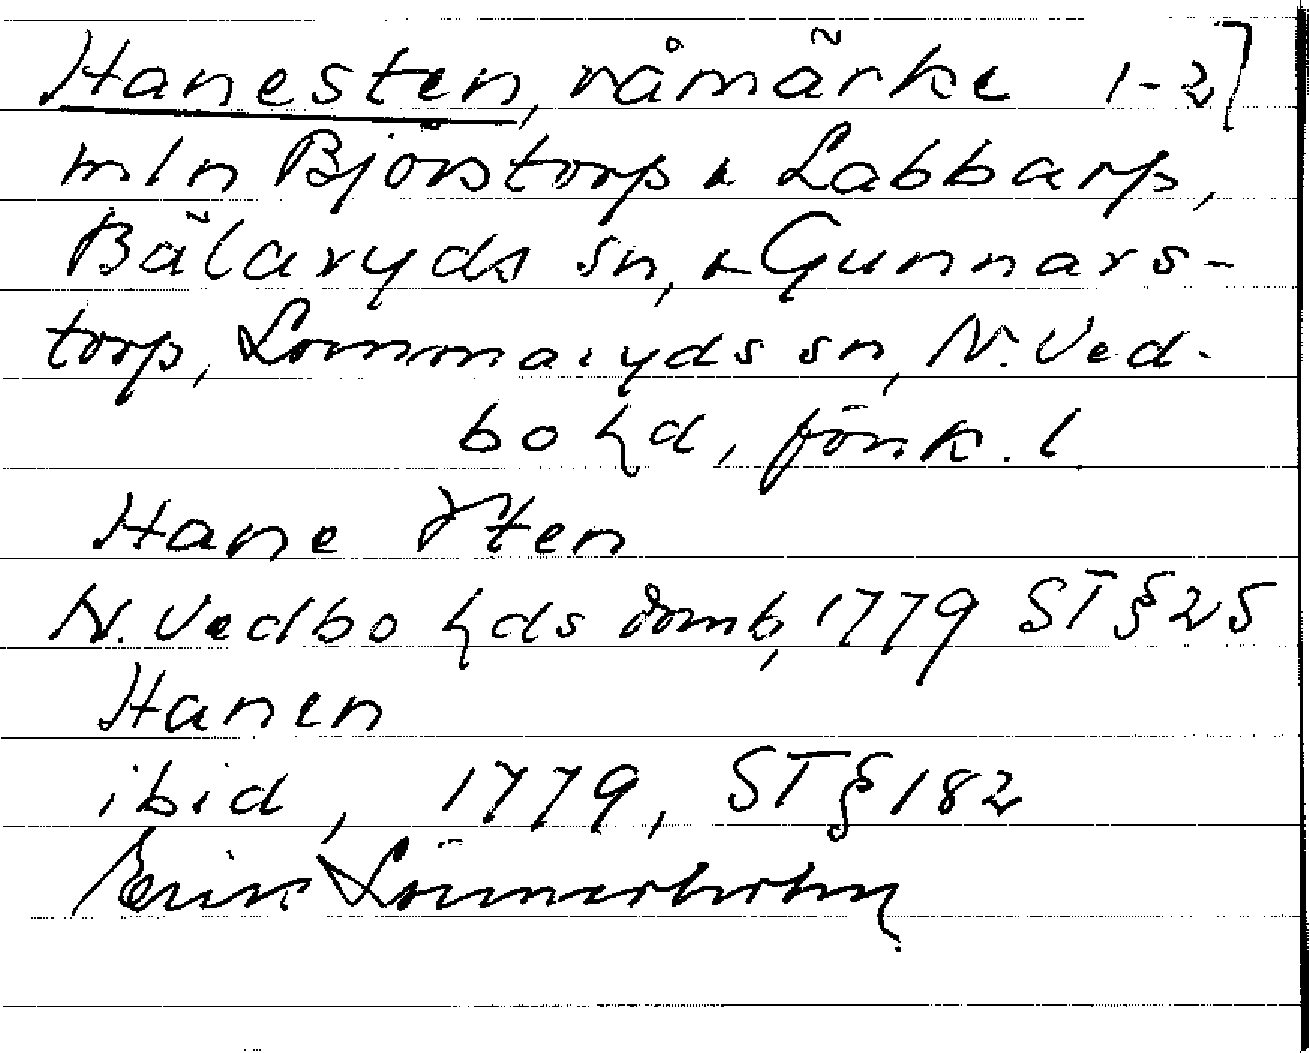 Hanesten, råmärke 1-2]
mln Björstorp & Labbarp,
Bälaryds sn, & Gunnars-
torp, Lommaryds sn, N. Ved-
bo hd, Jönk. l.
Hane Sten
N. Vedbo hds domb, 1779 ST § 25
Hanen
ibid, 1779, ST § 182
Erik Lönnerholm